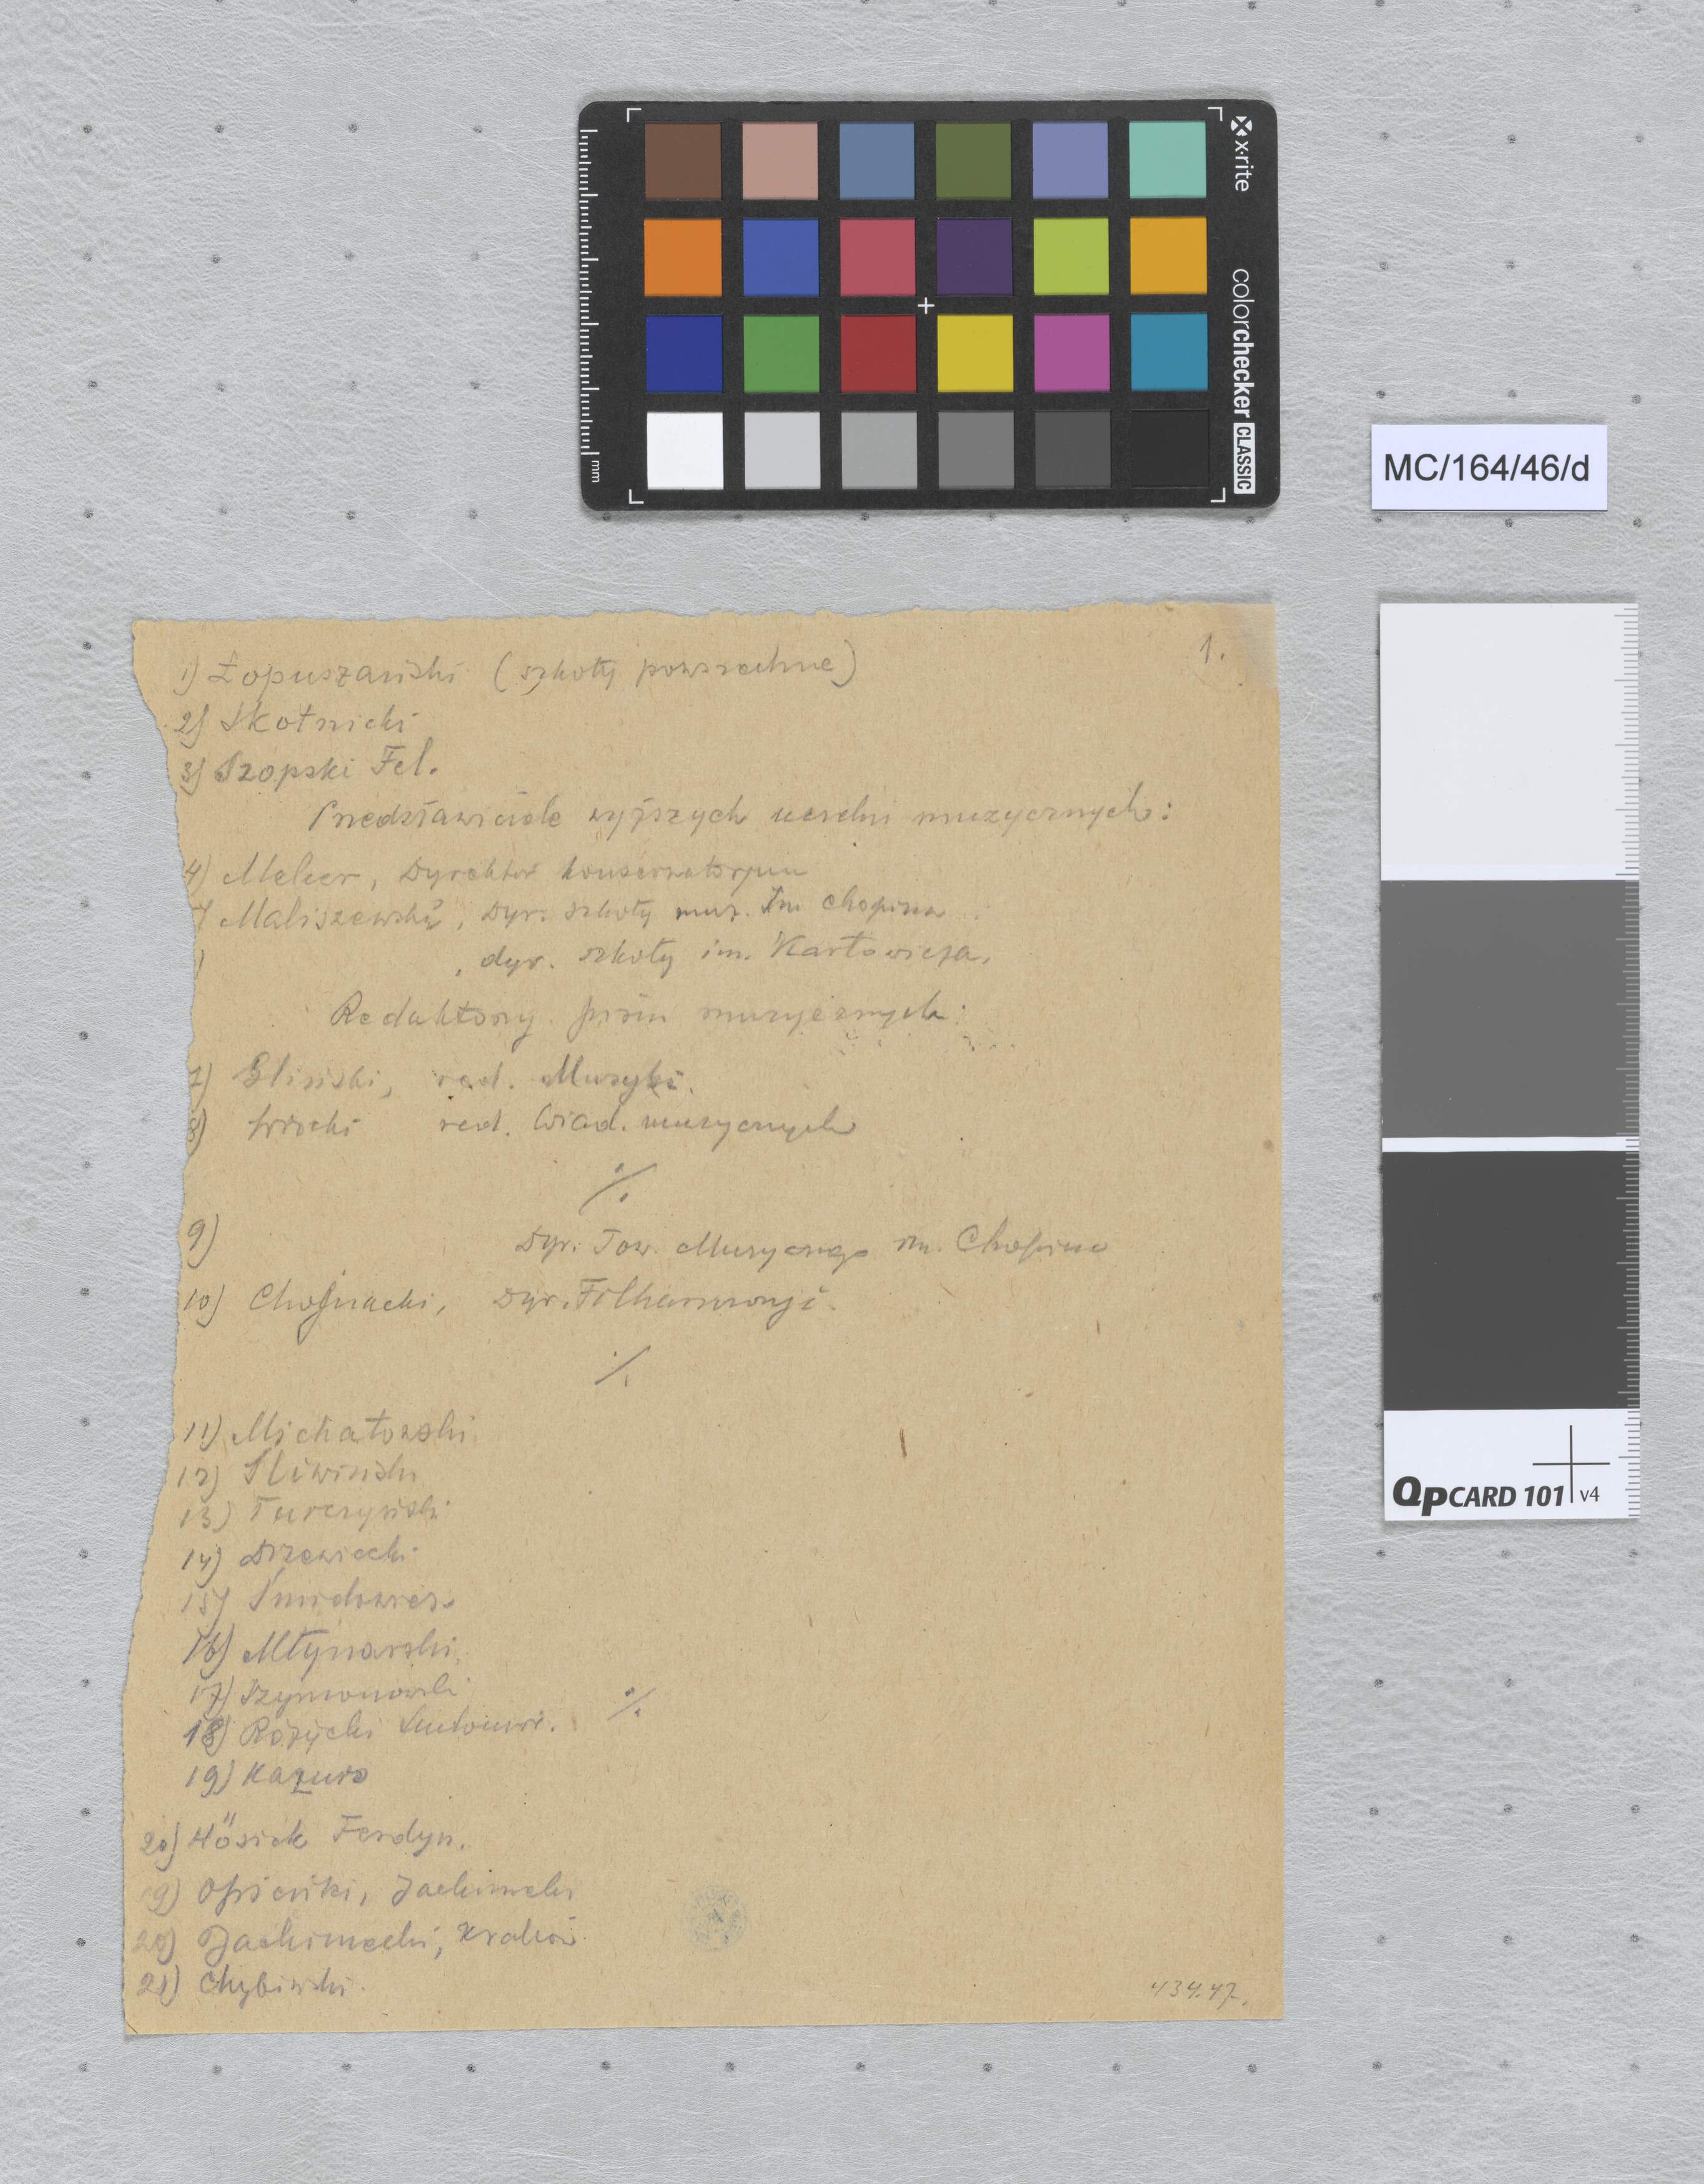 x·rite
colorchecker CLASSIC
mm
MC/164/46/d
1.
1) Łopuszański (szkoły powszechne)
2) Skotnicki
3) Szopski Fel.
Przedstawiciele wyższych uczelni muzycznych:
4) Melcer, Dyrektor konserwatorjum
) Maliszewski, Dyr. szkoły muz. Im Chopina
) , dyr. szkoły im. Karłowicza.
Redaktorzy pism muzycznych:
7) Gliński, red. Muzyki.
8) red. Wiad. muzycznych
%
9) Dyr. Tow. Muzycznego im. Chopina
10) Chojnacki, Dyr. Filharmonji.
%
11) Michałowski
12) Śliwiński
13) Turczyński
14) Drzewiecki
15) Śmidowicz
16) Młynarski
17) Szymanowski
18) Różycki Ludomir. %
19) Kazuro
20) Hösick Ferdyn.
19) Opieński, Jachimecki
20) Jachimecki, Kraków.
21) Chybiński.
434.47.
QpCARD 101 v4